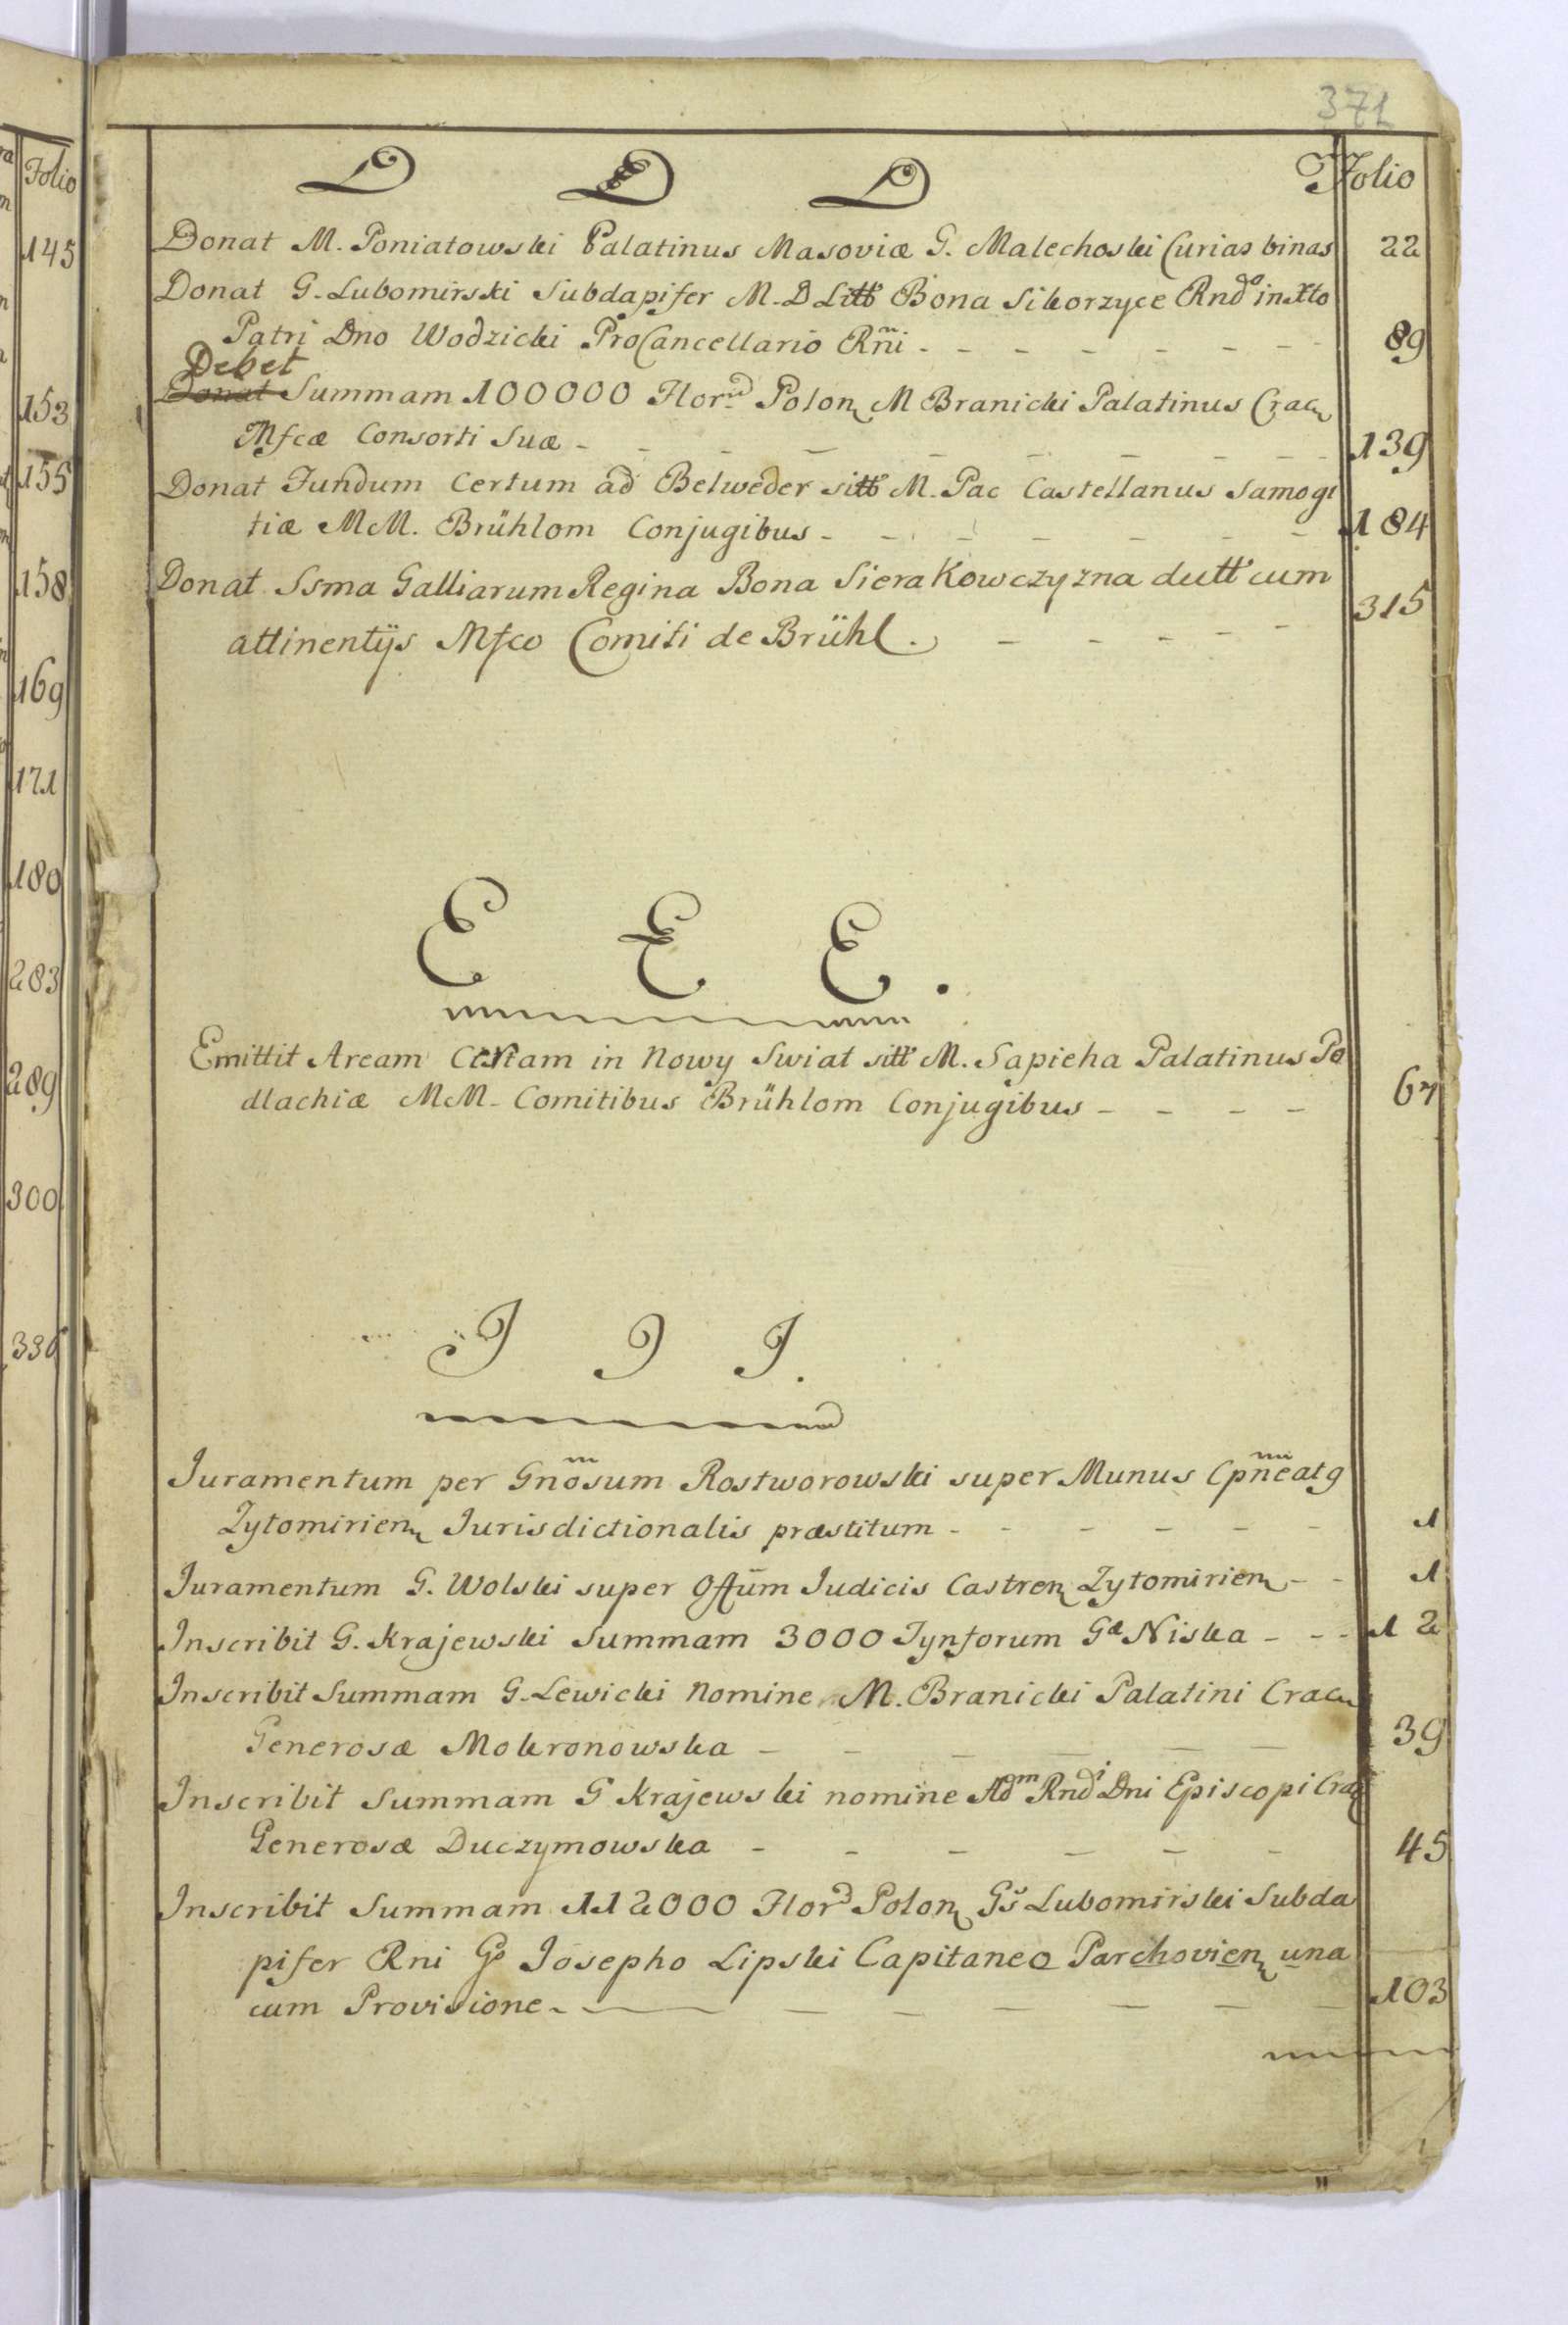 371
D D D Folio
Donat M. Poniatowski Palatinus Masoviæ G. Malechoski Curias binas 22
Donat G. Lubomirski Subdapifer M. D Litt Bona Sikorzyce Rndo in Xto
Patri Dno Wodzicki ProCancellario Rni - - - - - - 89
Debet
Donat Summam 100000 Flor. Polon M Branicki Palatinus Crac
Mfcæ Consorti Suæ - - - - - - 139
Donat Fundum Certum ad Belweder sitt M. Pac Castellanus Samogi
tiæ MM. Brühlom Conjugibus - - - - - - 184
Donat Ssma Galliarum Regina Bona Sierakowczyzna dutt cum
attinentijs Mfco Comiti de Brühl. - - - - - 315
E E E.
Emittit Aream Certam in Nowy Swiat sitt M. Sapieha Palatinus Po
dlachiæ MM. Comitibus Brühlom Conjugibus - - - - 67
I I I.
Iuramentum per Gnosum Rostworowski super Munus Cpneatg
Zytomirien Iurisdictionalis præstitum - - - - - - 1
Iuramentum G. Wolski super Offium Iudicis Castren Zytomirien - - 1
Inscribit G. Krajewski Summam 3000 Tynforum Gæ Niska - - - 12
Inscribit Summam G. Lewicki Nomine M. Branicki Palatini Crac
Generosæ Mokronowska - - - - - - 39
Inscribit Summam G Krajewski nomine Adm Rndi Dni Episcopi Crac
Generosæ Duczymowska - - - - - - 45
Inscribit Summam 112000 Flor Polon Gs Lubomirski Subda
pifer Rni Go Josepho Lipski Capitaneo Parchovien una
cum Provisione - - - - - - - 103
Folio
145
153
155
158
169
171
180
283
289
300